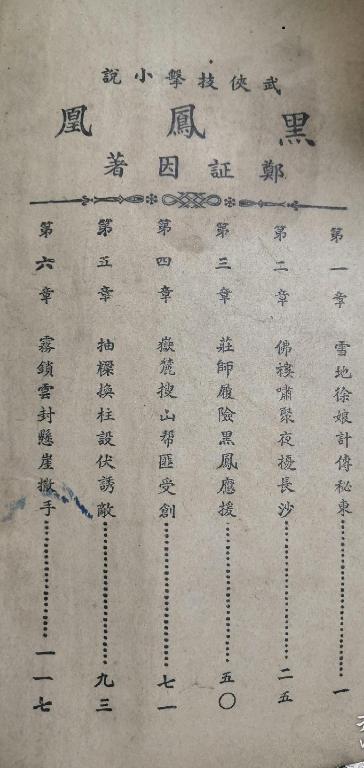 武俠技擊小說
黑鳳凰
鄭証因著
第一章 雪地徐娘計傳秘柬………………一
第二章 佛樓嘯聚夜擾長沙………………二五
第三章 莊師履險黑鳳應援………………五〇
第四章 嶽麓搜山帮匪受創………………七一
第五章 抽樑換柱設伏誘敵………………九三
第六章 霧鎖雲封懸崖撒手………………一一七